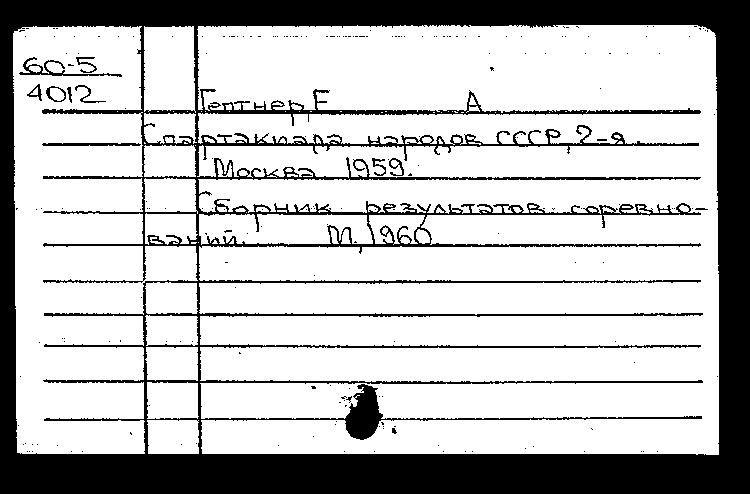 60-5
4012
Гептнер, Е А
Спартакиада народов СССР, 2-я.
Москва 1959.
Сборник результатов соревно-
ваний. М, 1960.